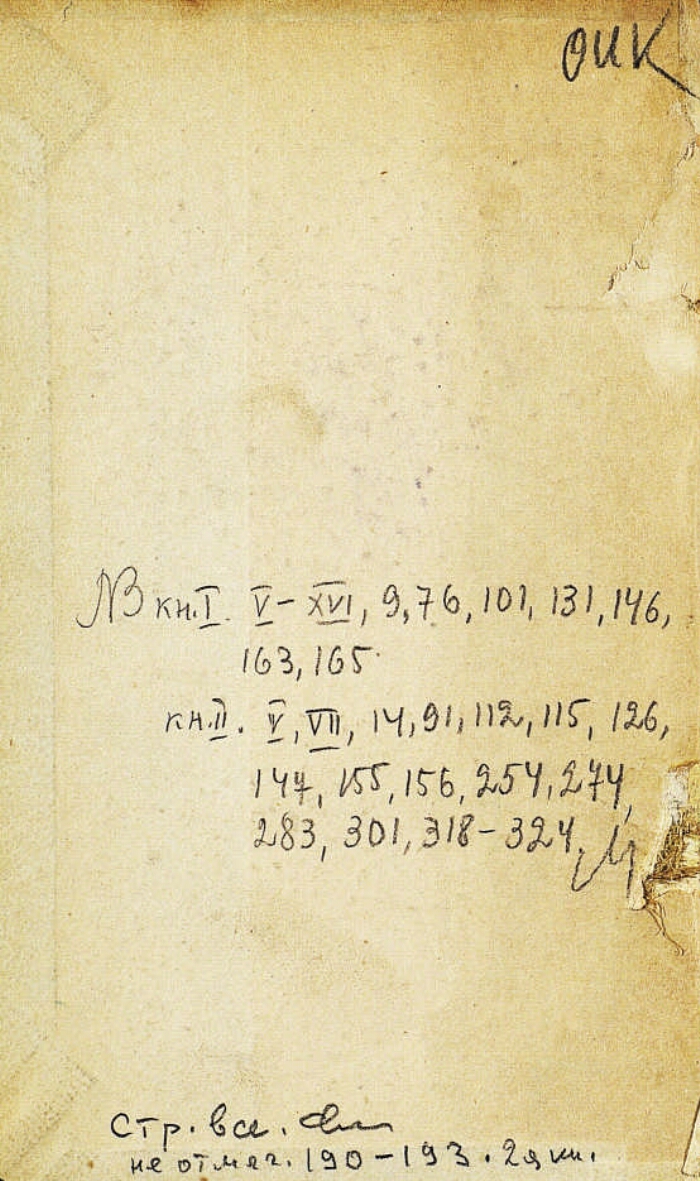 ОИК
NB кн. I. V–XVI, 9, 76, 101, 131, 146,
163, 165.
кн. II. V, VII, 14, 91, 112, 115, 126,
147, 155, 156, 254, 274,
283, 301, 318–324.
Стр. все.
не отмеч. 190–193. 2я кн.